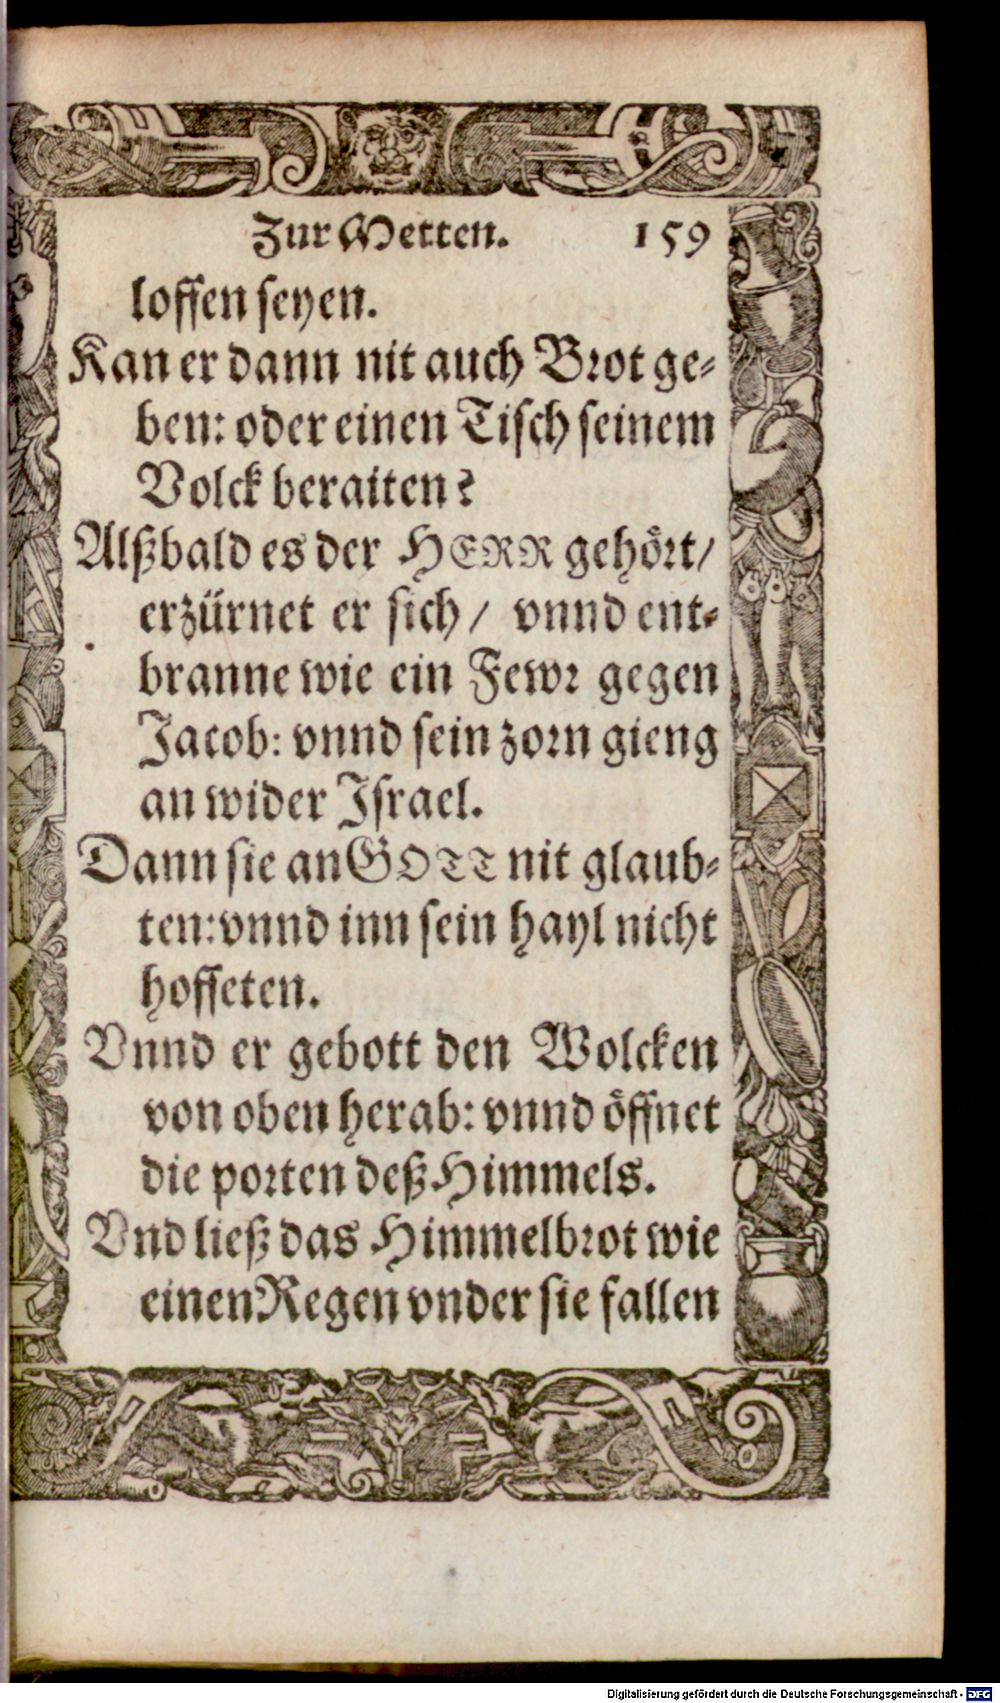 Zur Metten. 159
loffen seyen.
Kan er dann nit auch Brot ge-
ben: oder einen Tisch seinem
Volck beraiten?
Alßbald es der HERR gehört/
erzürnet er sich/ vnnd ent-
branne wie ein Fewr gegen
Jacob: vnnd sein zorn gieng
an wider Israel.
Dann sie an GOTT nit glaub-
ten: vnnd inn sein hayl nicht
hoffeten.
Vnnd er gebott den Wolcken
von oben herab: vnnd öffnet
die porten deß Himmels.
Vnd ließ das Himmelbrot wie
einen Regen vnder sie fallen
Digitalisierung gefördert durch die Deutsche Forschungsgemeinschaft - DFG